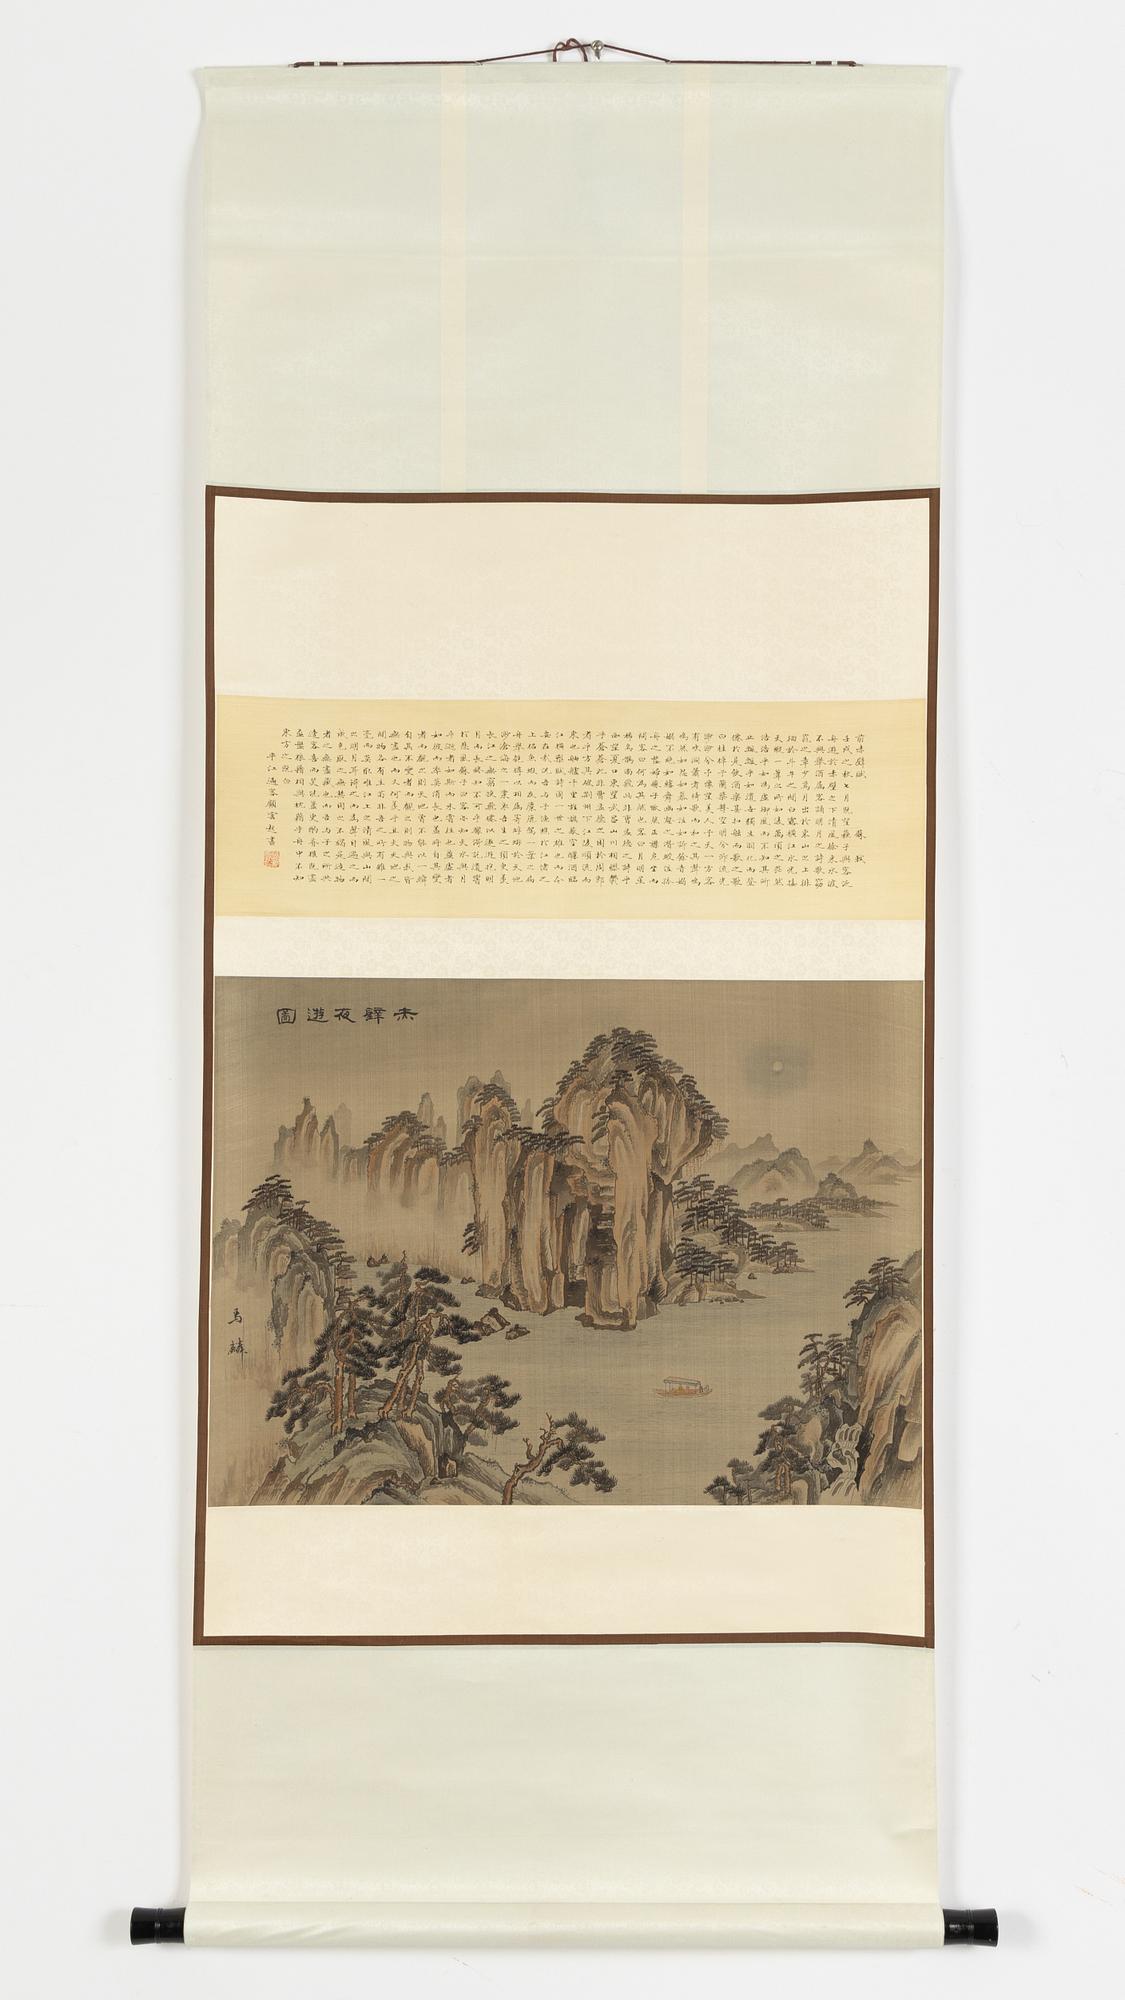 前赤壁賦 蘇軾
壬戌之秋七月既望蘇子與客泛
舟遊於赤壁之下清風徐來水波
不興舉酒屬客誦明月之詩歌窈
窕之章少焉月出於東山之上徘
徊於斗牛之間白露橫江水光接
天縱一葦之所如凌萬頃之茫然
浩浩乎如馮虛御風而不知其所
止飄飄乎如遺世獨立羽化而登
僊於是飲酒樂甚扣舷而歌之歌
曰桂棹兮蘭槳擊空明兮泝流光
渺渺兮予懷望美人兮天一方客
有吹洞簫者倚歌而和之其聲嗚
嗚然如怨如慕如泣如訴餘音嫋
嫋不絕如縷舞幽壑之潛蛟泣孤
舟之嫠婦蘇子愀然正襟危坐而
問客曰何為其然也客曰月明星
稀烏鵲南飛此非曹孟德之詩乎
西望夏口東望武昌山川相繆鬱
乎蒼蒼此非曹孟德之困於周郎
者乎方其破荊州下江陵順流而
東也舳艫千里旌旗蔽空釃酒臨
江橫槊賦詩固一世之雄也而今
安在哉況吾與子漁樵於江渚之
上侶魚蝦而友麋鹿駕一葉之扁
舟舉匏樽以相屬寄蜉蝣於天地
渺滄海之一粟哀吾生之須臾羨
長江之無窮挾飛僊以遨遊抱明
月而長終知不可乎驟得託遺響
於悲風蘇子曰客亦知夫水與月
乎逝者如斯而未嘗往也盈虛者
如彼而卒莫消長也蓋將自其變
者而觀之則天地曾不能以一瞬
自其不變者而觀之則物與我皆
無盡也而又何羨乎且夫天地之
間物各有主苟非吾之所有雖一
毫而莫取惟江上之清風與山間
之明月耳得之而為聲目遇之而
成色取之無禁用之不竭是造物
者之無盡藏也而吾與子之所共
適客喜而笑洗盞更酌肴核既盡
杯盤狼藉相與枕藉乎舟中不知
東方之既白
平江過客顧雲起書
赤壁夜遊圖
馬麟